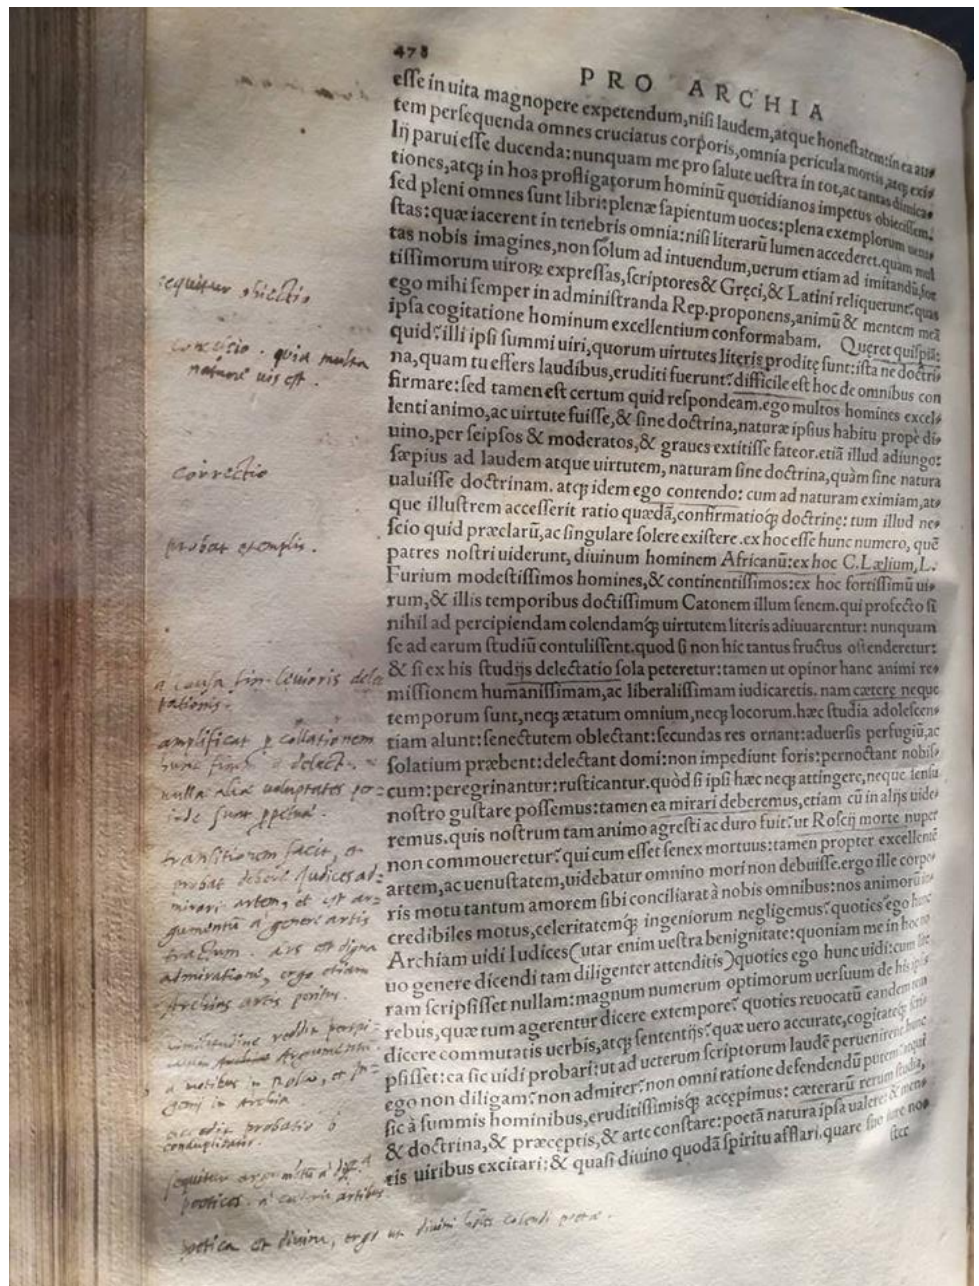 478
PRO ARCHIA
esse in uita magnopere expetendum, nisi laudem, atque honestatem: in ea aut
tem persequenda omnes cruciatus corporis, omnia pericula mortis, atq; exi
lij parui esse ducenda: nunquam me pro salute uestra in tot, ac tantas dimica
tiones, atq; in hos profligatorum hominū quotidianos impetus obiecissem.
sed pleni omnes sunt libri: plenæ sapientum uoces: plena exemplorum uetu
stas: quæ iacerent in tenebris omnia: nisi literarū lumen accederet. quam mul
tas nobis imagines, non solum ad intuendum, uerum etiam ad imitandū, for
tissimorum uirorꝝ expressas, scriptores & Gręci, & Latini reliquerunt: quas
ego mihi semper in administranda Rep. proponens, animū & mentem meā
ipsa cogitatione hominum excellentium conformabam. Quęret quispiā:
quid? illi ipsi summi uiri, quorum uirtutes literis proditę sunt: ista ne doctri
na, quam tu effers laudibus, eruditi fuerunt? difficile est hoc de omnibus con
firmare: sed tamen est certum quid respondeam. ego multos homines excel
lenti animo, ac uirtute fuisse, & sine doctrina, naturæ ipsius habitu propè di
uino, per seipsos & moderatos, & graues extitisse fateor. etiā illud adiungo:
sæpius ad laudem atque uirtutem, naturam sine doctrina, quàm sine natura
ualuisse doctrinam. atq; idem ego contendo: cum ad naturam eximiam, at
que illustrem accesserit ratio quædā, confirmatioq; doctrinę: tum illud ne
scio quid præclarū, ac singulare solere existere. ex hoc esse hunc numero, quē
patres nostri uiderunt, diuinum hominem Africanū: ex hoc C. Lælium, L.
Furium modestissimos homines, & continentissimos: ex hoc fortissimū ui
rum, & illis temporibus doctissimum Catonem illum senem. qui profecto si
nihil ad percipiendam colendamq; uirtutem literis adiuuarentur: nunquam
se ad earum studiū contulissent. quod si non hic tantus fructus ostenderetur:
& si ex his studijs delectatio sola peteretur: tamen ut opinor hanc animi re
missionem humanissimam, ac liberalissimam iudicaretis. nam cæterę neque
temporum sunt, neq; ætatum omnium, neq; locorum. hæc studia adolescen
tiam alunt: senectutem oblectant: secundas res ornant: aduersis perfugiū, ac
solatium præbent: delectant domi: non impediunt foris: pernoctant nobis
cum: peregrinantur: rusticantur. quòd si ipsi hæc neq; attingere, neque sensu
nostro gustare possemus: tamen ea mirari deberemus, etiam cū in alijs uide
remus. quis nostrum tam animo agresti ac duro fuit? ut Roscij morte nuper
non commoueretur? qui cum esset senex mortuus: tamen propter excellentē
artem, ac uenustatem, uidebatur omnino mori non debuisse. ergo ille corpo
ris motu tantum amorem sibi conciliarat à nobis omnibus: nos animorū in
credibiles motus, celeritatemq; ingeniorum negligemus? quoties ego hunc
Archiam uidi Iudices (utar enim uestra benignitate: quoniam me in hoc no
uo genere dicendi tam diligenter attenditis) quoties ego hunc uidi: cum lite
ram scripsisset nullam: magnum numerum optimorum uersuum de his ipsis
rebus, quæ tum agerentur dicere extempore? quoties reuocatū eandem rem
dicere commutatis uerbis, atq; sententijs? quæ uero accurate, cogitateq; scri
psisset: ea sic uidi probari: ut ad ueterum scriptorum laudē perueniret. hunc
ego non diligam? non admirer? non omni ratione defendendū putem? atqui
sic à summis hominibus, eruditissimisq; accepimus: cæterarū rerum studia,
& doctrina, & præceptis, & arte constare: poetā natura ipsa ualere: & men
tis uiribus excitari: & quasi diuino quodā spiritu afflari. quare suo iure no
ster
sequitur obiectio
concessio. quia multa
naturę uis est.
correctio
probat exemplis.
a causa fin. leuioris delec
tationis.
amplificat p collationem
nulla alia uoluptates
transitionem facit, et
probat debere Iudices ad
mirari artem, et est ar
gumentū a genere artis
tractum. ars est digna
admiratione, ergo etiam
Archias artis peritus.
a motibus in
in Archia
accedit probatio
conduplicatio.
sequitur
poetices. a cæteris artibus
poetica est diuina, ergo ut diuini colendi poetæ.